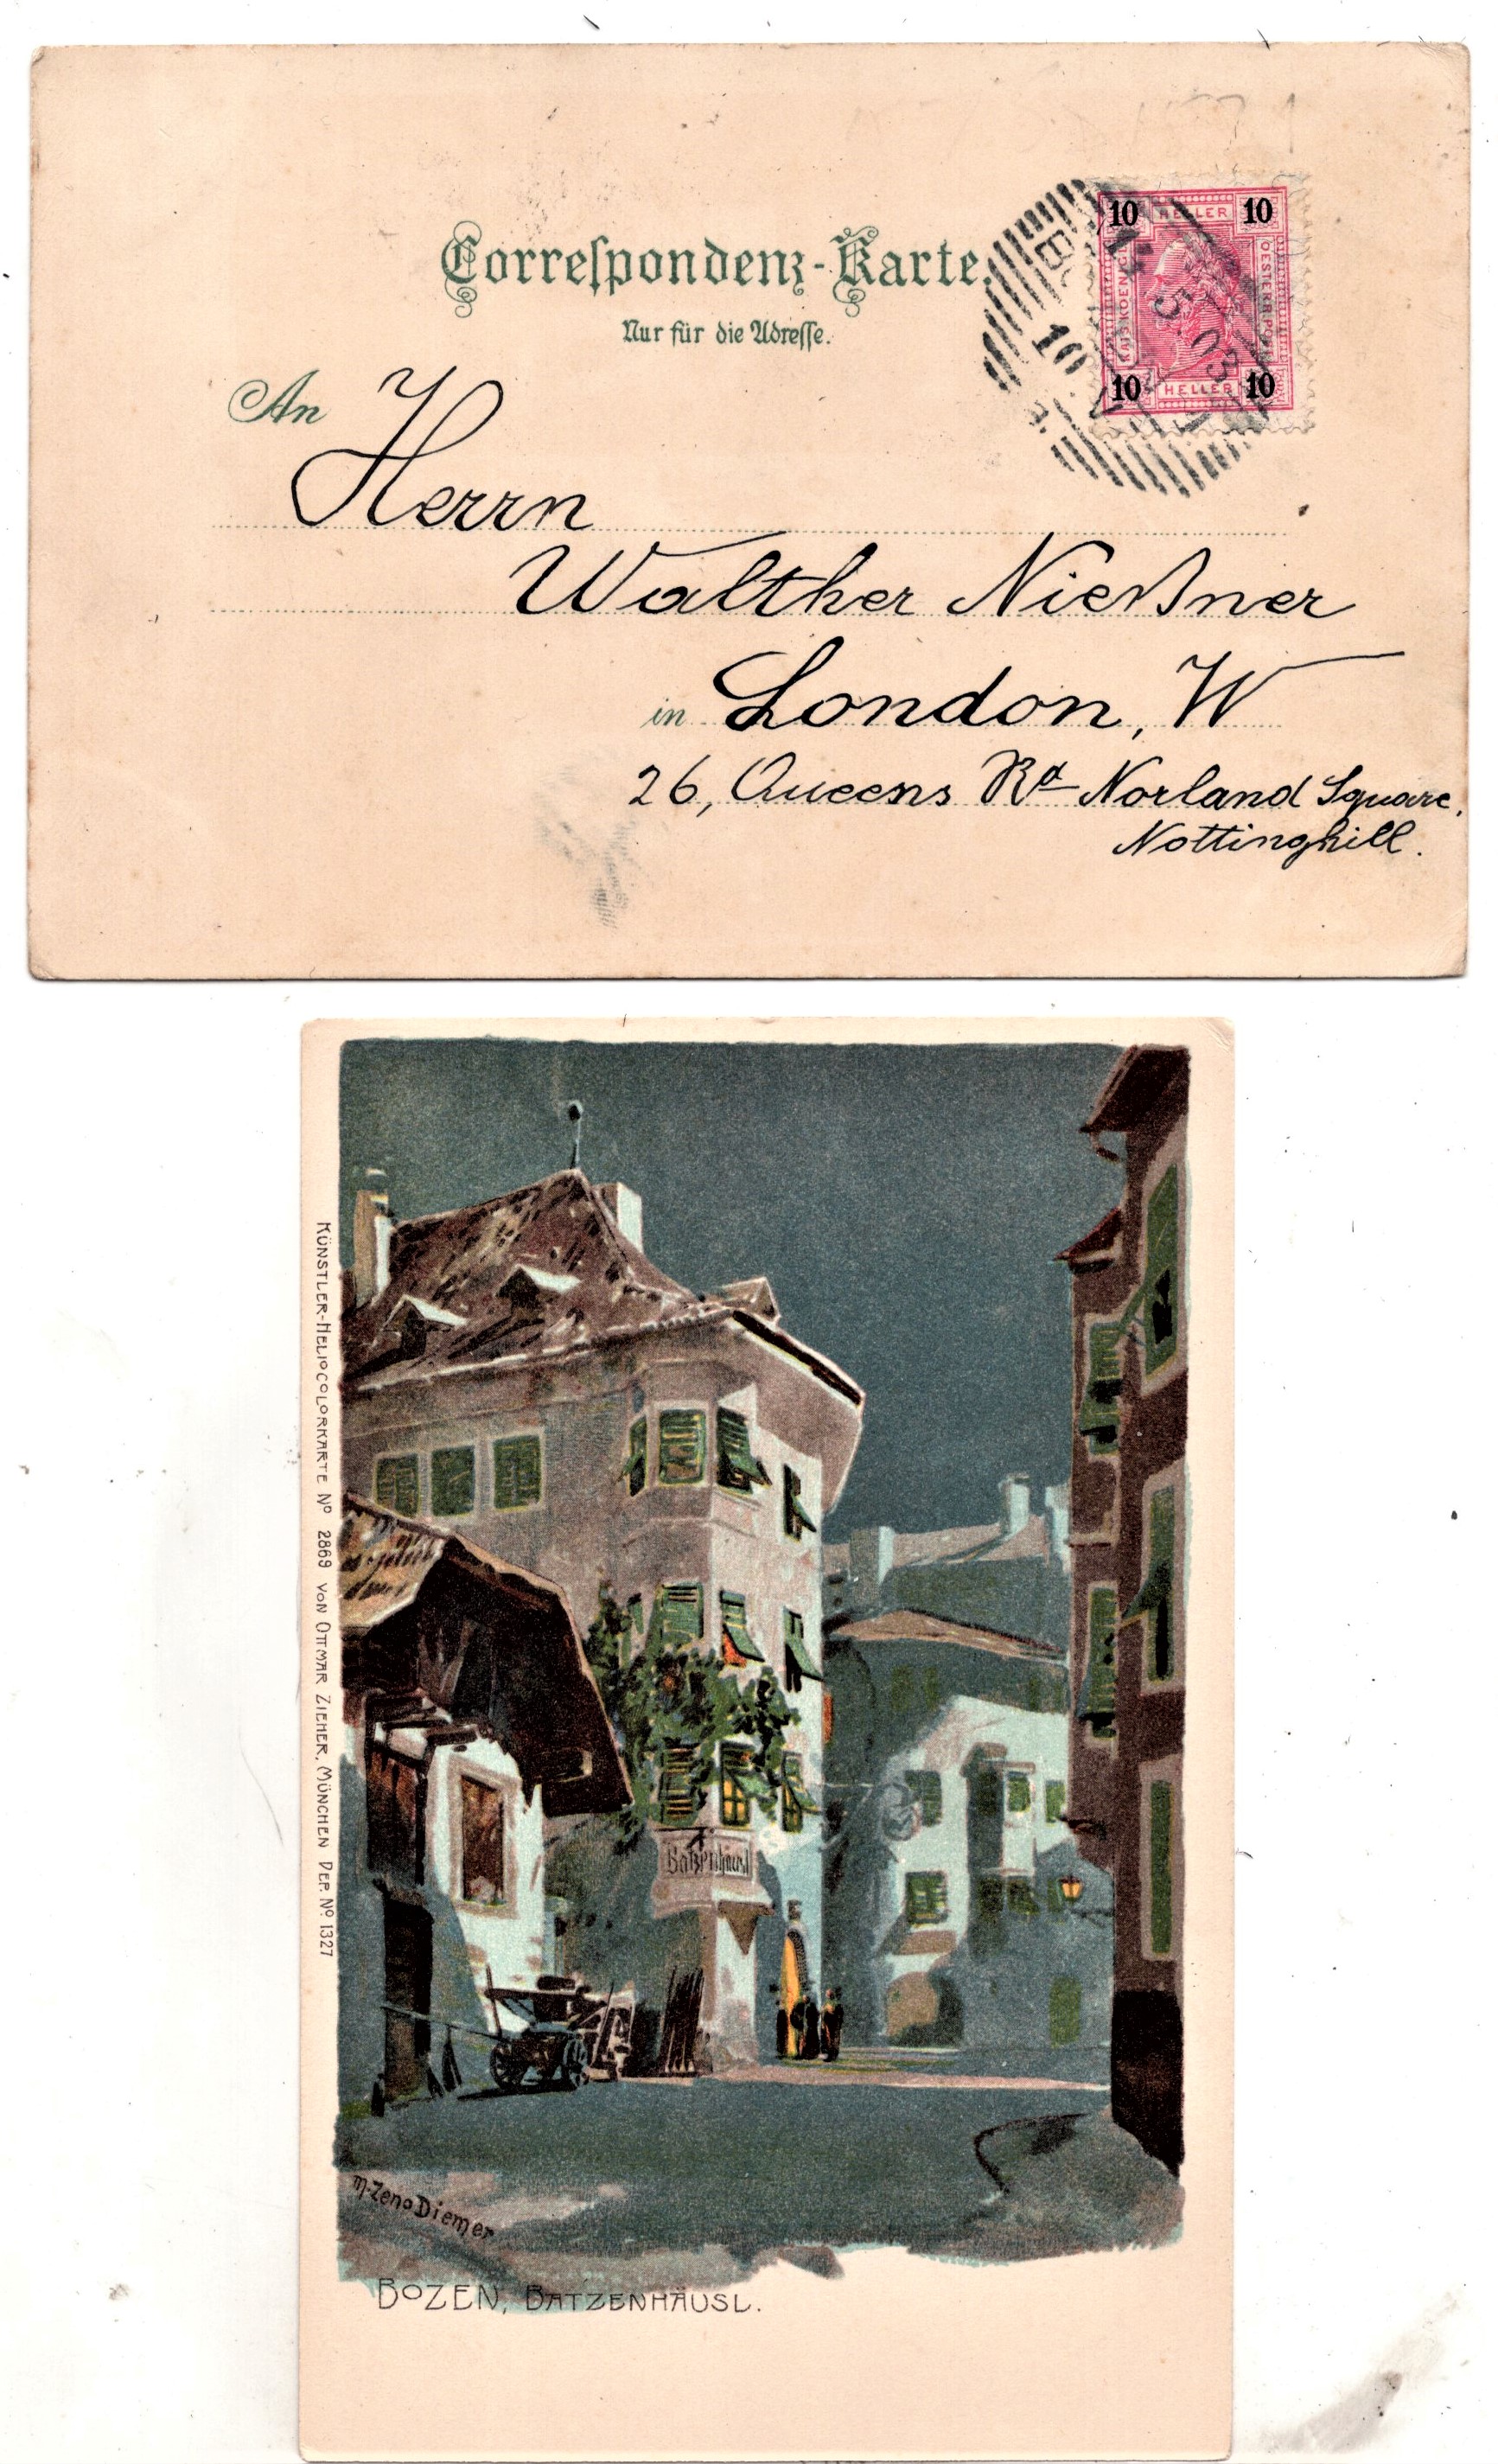 Correspondenz-Karte.
Nur für die Adresse.
10 HELLER 10
KAIS. KOENIGL.
OESTERR. POST
10 HELLER 10
15 5 03
10
An Herrn
Walther Nießner
in London, W
26, Queens Rd Norland Square,
Nottinghill.
KÜNSTLER-HELIOCOLORKARTE No 2869 VON OTTMAR ZIEHER, MÜNCHEN DEP. No 1327
Batzenhäusl
M. Zeno Diemer
BOZEN, BATZENHÄUSL.